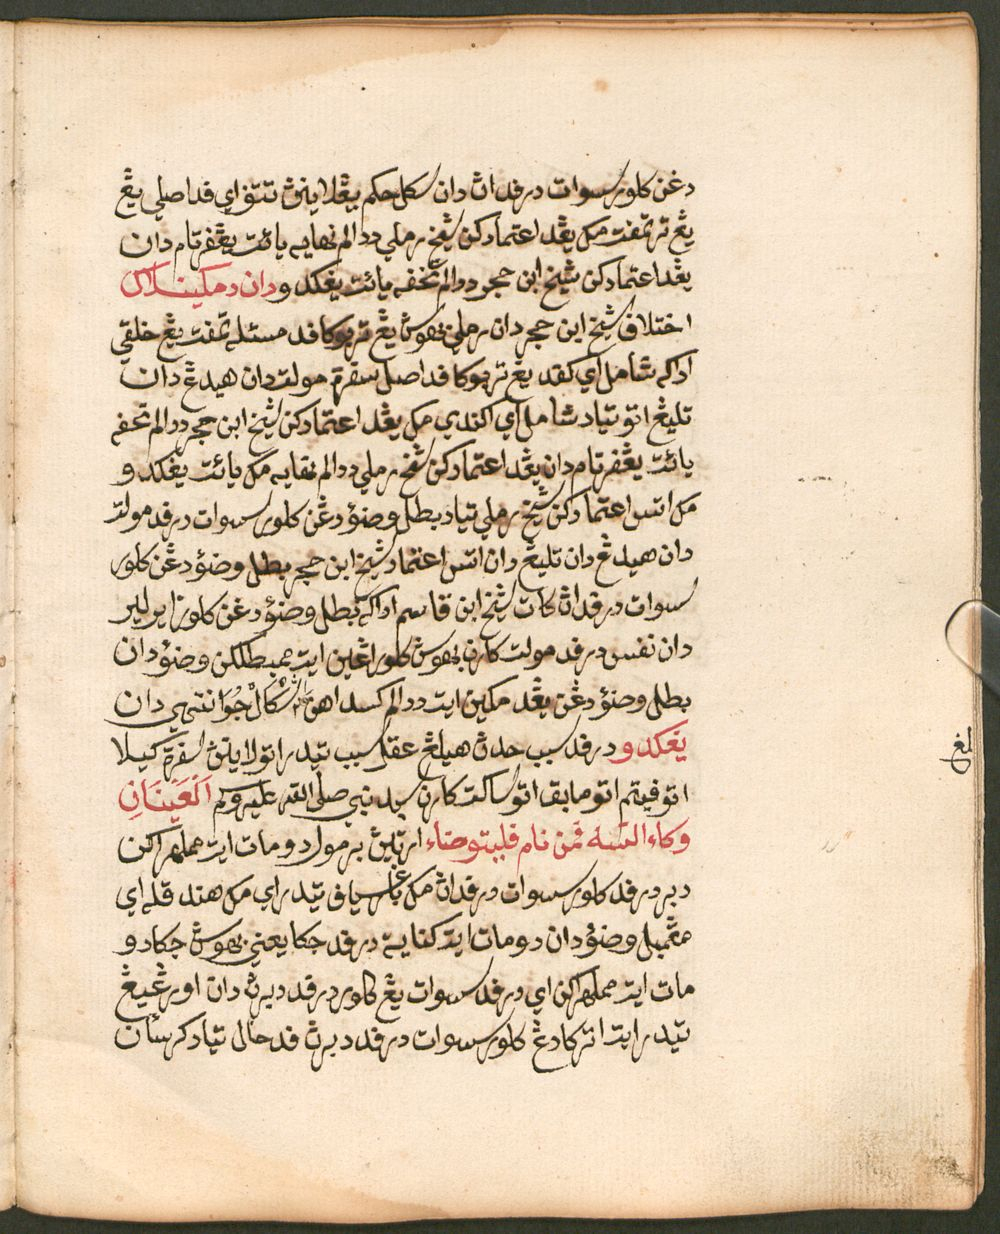 دڠن كلور سسوات درفداڽ دان سكل حكم يڠلاينڽ تتڤ اي فد اصلي يڠ
يڠ ترتمفت مك يڠد اعتمادكن شيخ رملي ددالم نهايه يائت يڠفرتام دان
يڠد اعتمادكن شيخ ابن حجر ددالم تحفه يائت يڠكدو دان دمكينله
اختلاف شيخ ابن حجر دان رملي بهوس يڠ تربوكا فد مسئله تمفت يڠ خلقي
اداكه شامل اي كفد يڠ تربوكا فد اصل سفرة مولت دان هيدڠ دان
تليڠ اتو تياد شامل اي اكندي مك يڠد اعتمادكن شيخ ابن حجر ددالم تحفه
يائت يڠفرتام دان يڠد اعتمادكن شيخ رملي ددالم نهايه مك يائت يڠكدو
مك اتس اعتمادكن شيخ رملي تياد بطل وضؤ دڠن كلور سسوات درفد مولت
دان هيدڠ دان تليڠ دان اتس اعتماد شيخ ابن حجر بطل وضؤ دڠن كلور
سسوات درفداڽ كات شيخ ابن قاسم اداكه بطل وضؤ دڠن كلور اير لير
دان نفس درفد مولت كارن بهوس كلور اڠين ايت ممبطلكن وضؤ دان
بطل وضؤ دڠن يڠد مكين ايت ددالم كسداهن اشكال جوا انتهي دان
يڠكدو درفد سبب حدث هيلڠ عقل سبب تيدر اتو لاينڽ سفرة كيلا
اتو فيتم اتو مابق اتو ساكت كارن سبد نبي صلى الله عليه وسلم العينان
وكاء السه فمن نام فليتوضاء ارتيڽ برمول دو مات ايت مملهراكن
دبر درفد كلور سسوات درفداڽ مك بارڠسياف تيدر اي مك هندقله اي
مڠمبل وضؤ دان دو مات ايت كناية درفد جكا يعني بهوس جكا دو
مات ايت مملهراكن اي درفد سسوات يڠ كلور درفد دبرڽ دان اورڠ يڠ
تيدر ايت تركادڠ كلور سسوات درفد دبرڽ فد حال تياد كرسأن